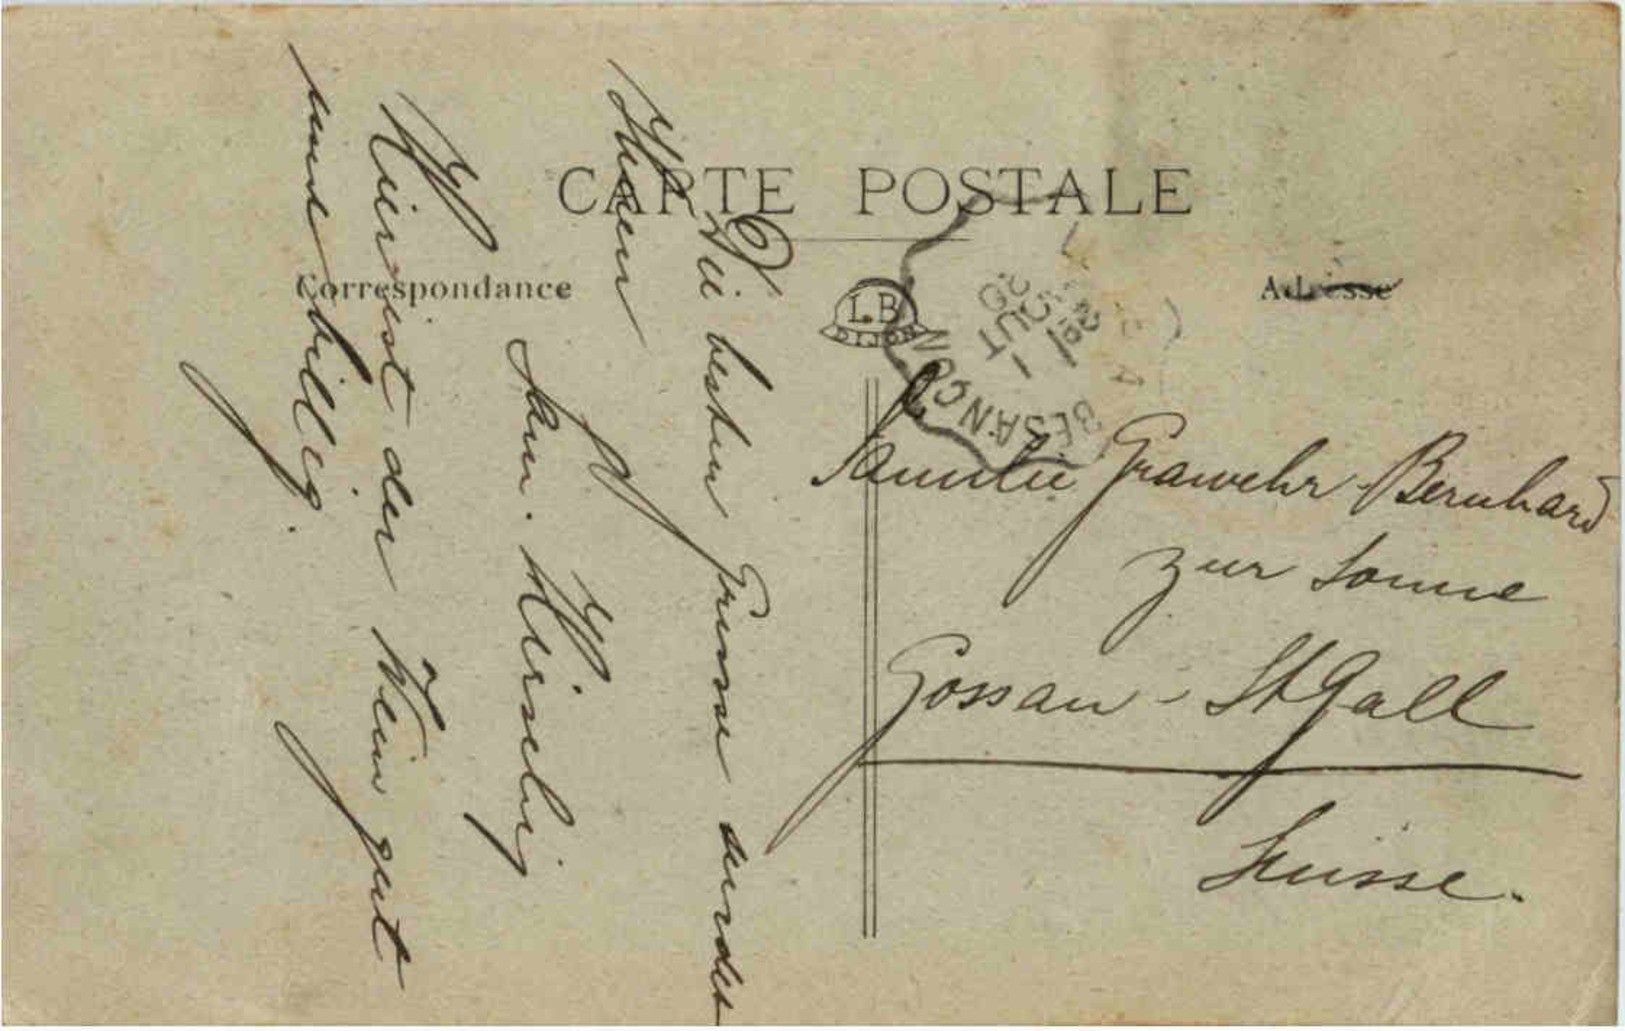 CARTE POSTALE
Correspondance
Adresse
L.B
DIJON
BESANCON
OUT
20
Die besten Grüsse sendet
Ihnen
Fam. Hirselig
Hier ist der Wein gut
und billig.
Familie Grawehr-Bernhard
zur Sonne
Gossau - St Gall
Suisse.